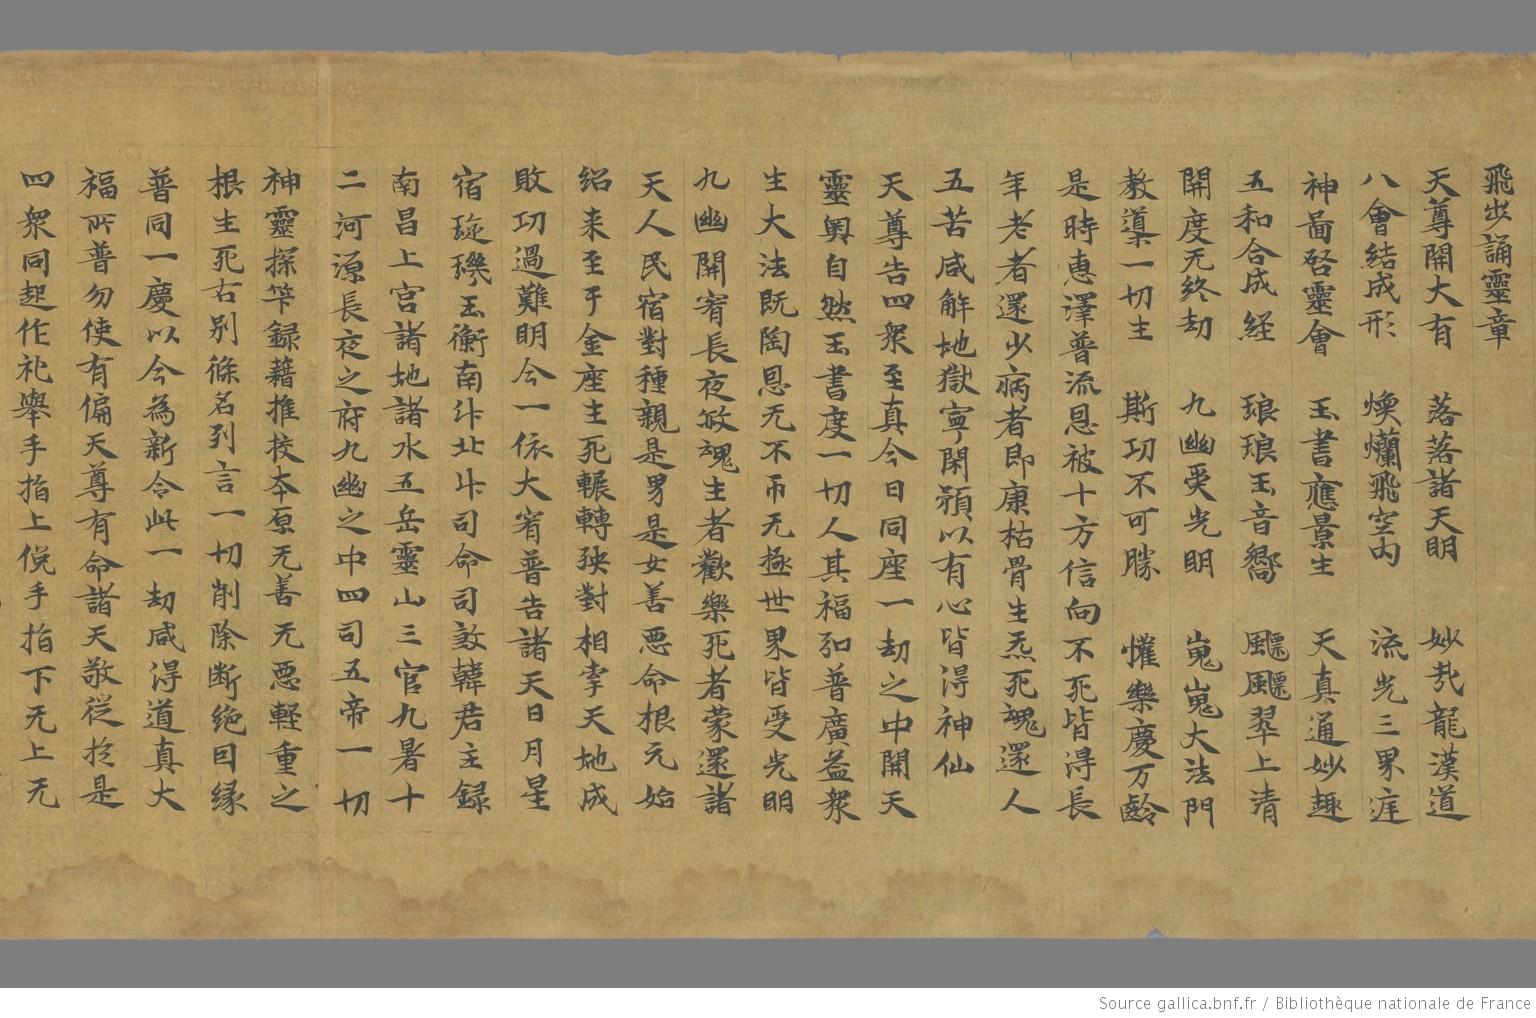 飛步誦靈章
天尊開大有　落落諸天明　妙哉龍漢道
八會結成形　煥爛飛空內　流光三界庭
神啚啓靈會　玉書應景生　天真通妙趣
五和合成經　琅琅玉音嚮　飈飈翠上清
開度无終劫　九幽受光明　嵬嵬大法門
教導一切生　斯功不可勝　懽樂慶万齡
是時惠澤普流恩被十方信向不死皆得長
年老者還少病者即康枯骨生炁死魂還人
五苦咸解地獄寧閑願以有心皆得神仙
天尊告四衆至真今日同座一劫之中開天
靈奧自然玉書度一切人其福弘普廣益衆
生大法既陶恩无不帀无極世界皆受光明
九幽開宥長夜放魂生者歡樂死者蒙還諸
天人民宿對種親是男是女善惡命根元始
紹来至于金座生死輾轉殃對相牽天地成
敗功過難明今一依大宥普告諸天日月星
宿琁璣玉衡南斗北斗司命司敹韓君主録
南昌上宮諸地諸水五岳靈山三官九署十
二河源長夜之府九幽之中四司五帝一切
神靈探笇録藉推校本原无善无惡輕重之
根生死右别條名列言一切削除断絶因緣
普同一慶以今為新令此一劫咸得道真大
福所普勿使有偏天尊有命諸天敬従於是
四衆同起作礼舉手指上俛手指下无上无